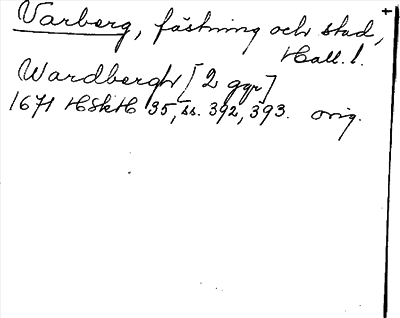 Varberg, fästning och stad,
Hall. l.
Wardbergh [2 ggr]
1671 HSkH 35, ss. 392, 393. orig.